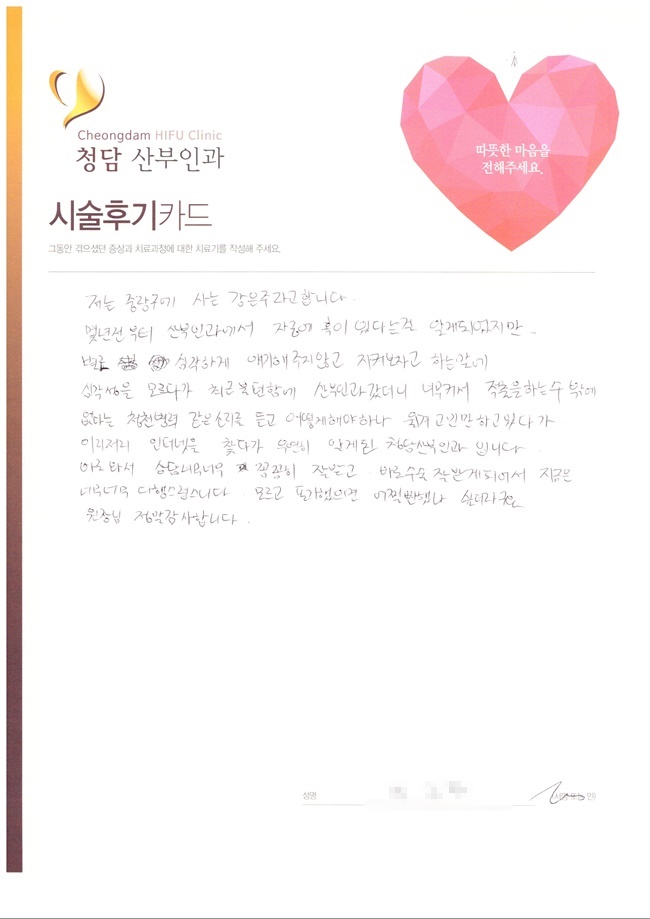 Cheongdam HIFU Clinic
청담 산부인과
따뜻한 마음을
전해주세요.
시술후기카드
그동안 겪으셨던 증상과 치료과정에 대한 치료기를 작성해 주세요.
저는 중랑구에 사는 강은주라고합니다.
몇년전부터 산부인과에서 자궁에 혹이 있다는걸 알게되었지만
별로 심각하게 얘기해주지않고 지켜보자고 하는말에
심각성을 모르다가 최근 산부인과갔더니 너무커서 적출을하는수밖에
없다는 청천벽력 같은소리를 듣고 어떻게해야하나 울며 고민만하고있다가
이리저리 인터넷을 찾다가 우연히 알게된 청담산부인과 입니다.
바로와서 상담너무너무 꼼꼼히 잘받고 바로수술 잘받게되어서 지금은
너무너무 다행스럽습니다. 모르고 포기했으면 어쩔뻔했나 싶더라구요
원장님 정말감사합니다.
성명